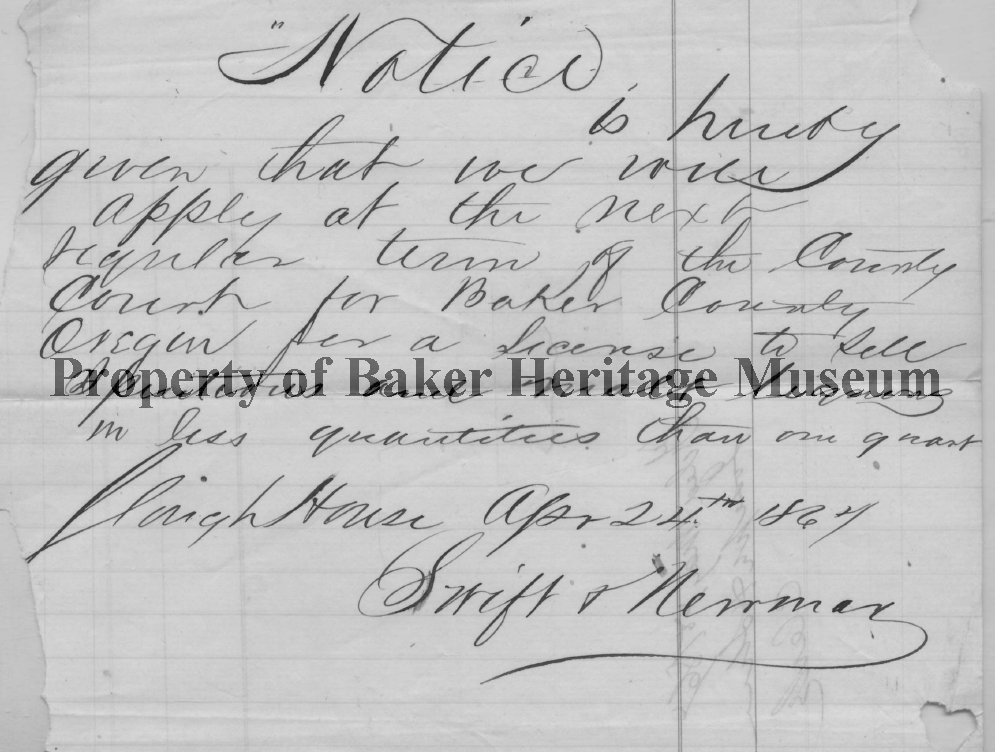 "Notice
is hereby
given that we will
apply at the next
regular term of the County
Court for Baker County
Oregon for a license to sell
Property of Baker Heritage Museum
Spirituous and malt liquors
in less quantities than one quart
Slough House Apr 24th 1864
Swift & Newman